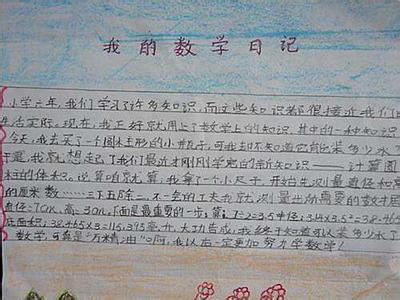 我的数学日记
小学六年,我们学习了许多知识,而这些知识都很接近我们的
生活实际。现在,我正好就用上了数学上的知识,其中的一种知识
今天,我去买了一个圆柱形的小瓶子,可我却不知道它能装多少水了
于是,我就想起了我们最近才刚刚学完的新知识——计算圆
柱的体积。说算咱就算,我拿了一个小尺子,开始先测量直径和高
的厘米数……三下五除二,不一会的工夫我就测量出所需要的数据
直径=7cm,高=3cm,下面是最重要的一步:算。7÷2=3.5 半径;3.14×3.5²=38.465
底面积;38.465×3=115.395毫升,大功告成,我终于知道可以装多少水了
数学,可真是“万精油”啊,我以后一定要加努力学数学!